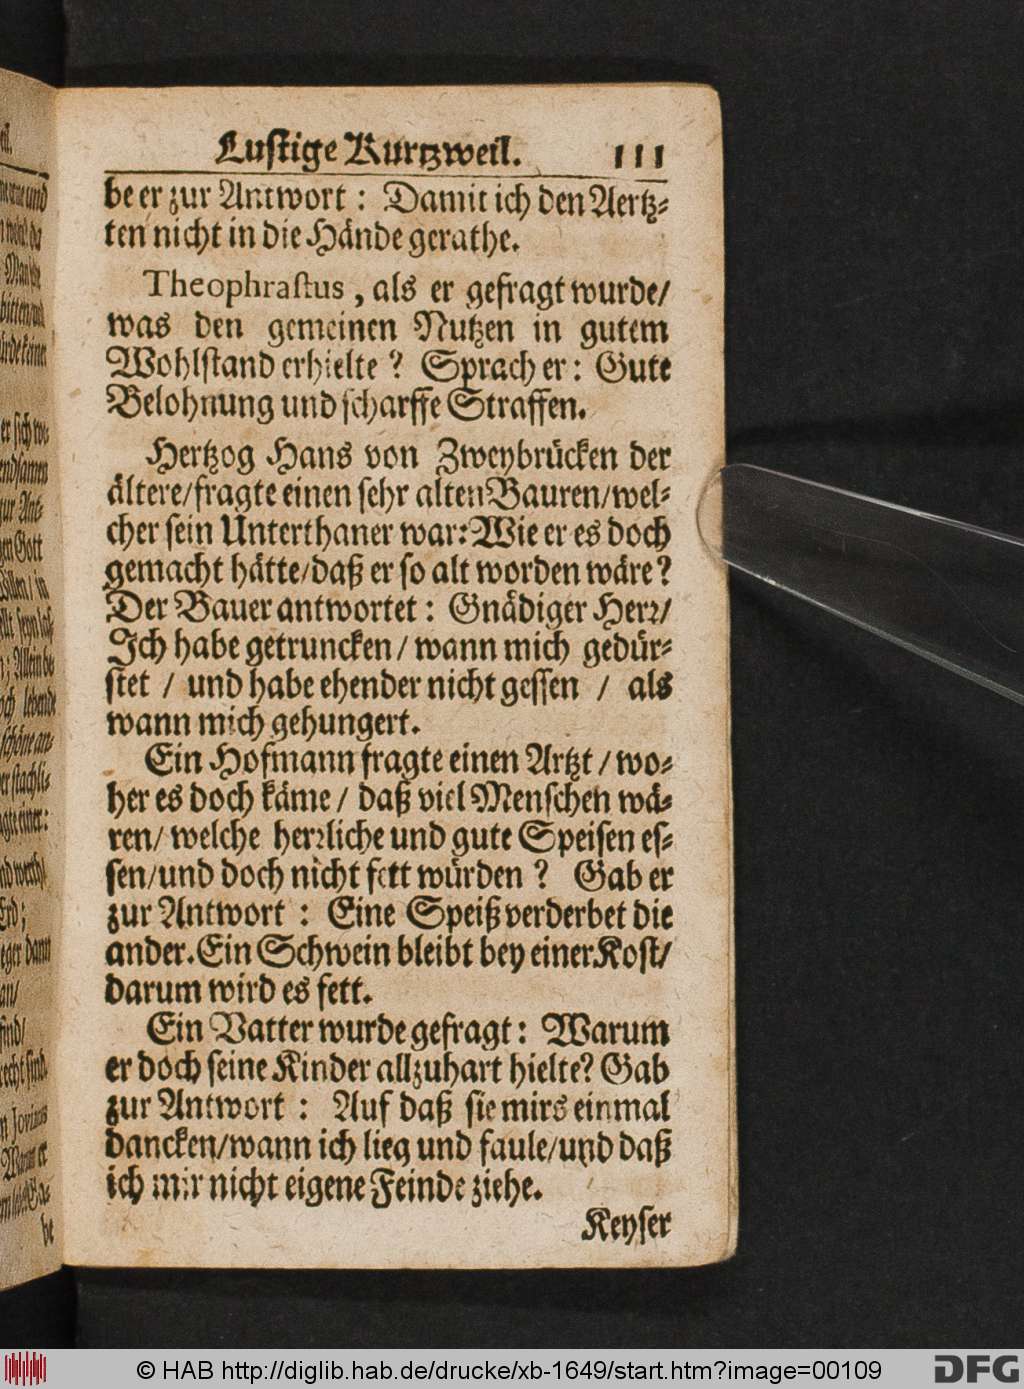 Lustige Kurtzweil. 111
be er zur Antwort : Damit ich den Aertz⸗
ten nicht in die Hände gerathe.
Theophrastus, als er gefragt wurde/
was den gemeinen Nutzen in gutem
Wohlstand erhielte ? Sprach er : Gute
Belohnung und scharffe Straffen.
Hertzog Hans von Zweybrücken der
ältere/fragte einen sehr alten Bauren/wel⸗
cher sein Unterthaner war: Wie er es doch
gemacht hätte/daß er so alt worden wäre?
Der Bauer antwortet : Gnädiger Herr/
Ich habe getruncken / wann mich gedür⸗
stet / und habe ehender nicht gessen / als
wann mich gehungert.
Ein Hofmann fragte einen Artzt / wo⸗
her es doch käme / daß viel Menschen wä⸗
ren/ welche herrliche und gute Speisen es⸗
sen/und doch nicht fett würden ? Gab er
zur Antwort : Eine Speiß verderbet die
ander. Ein Schwein bleibt bey einer Kost/
darum wird es fett.
Ein Vatter wurde gefragt : Warum
er doch seine Kinder allzuhart hielte? Gab
zur Antwort : Auf daß sie mirs einmal
dancken/wann ich lieg und faule/und daß
ich mir nicht eigene Feinde ziehe.
Keyser
© HAB http://diglib.hab.de/drucke/xb-1649/start.htm?image=00109
DFG